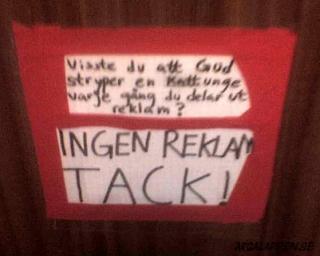 Visste du att Gud
stryper en kattunge
varje gång du delar ut
reklam?
INGEN REKLAM
TACK!
ARGALAPPEN.SE